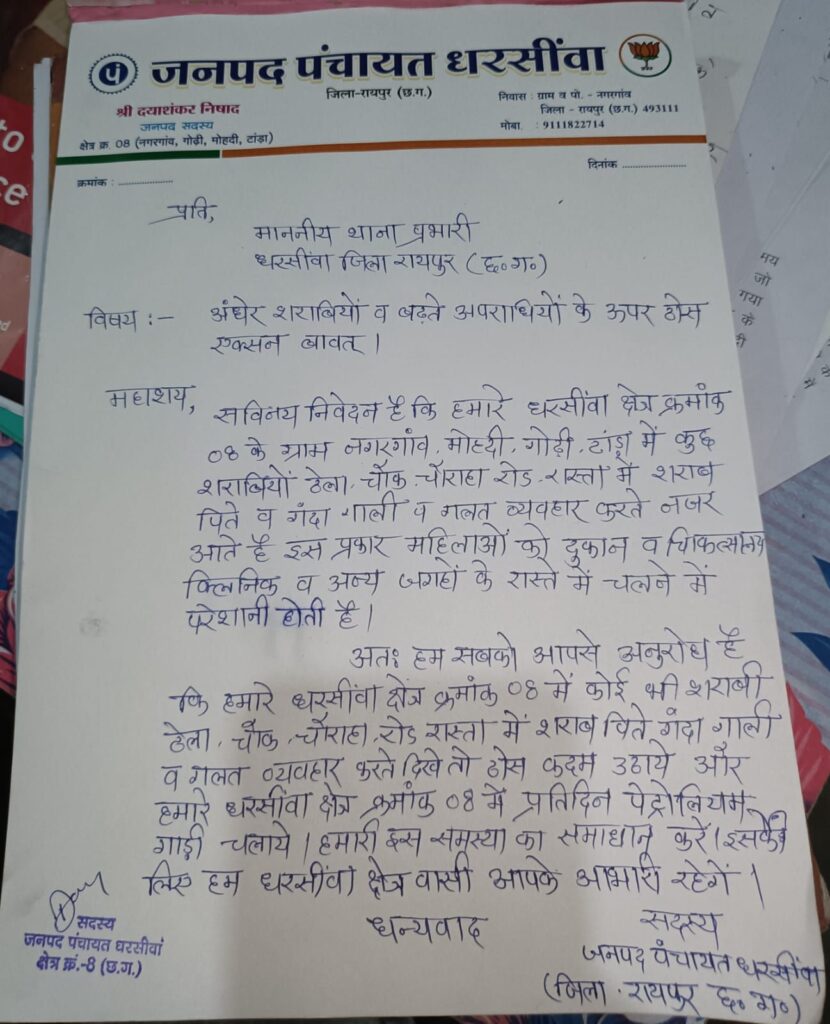 जनपद पंचायत धरसींवा
जिला-रायपुर (छ.ग.)
श्री दयाशंकर निषाद
जनपद सदस्य
क्षेत्र क्र. 08 (नगरगांव, गोढ़ी, मोहदी, टांडा)
निवास : ग्राम व पो. - नगरगांव
जिला - रायपुर (छ.ग.) 493111
मोबा. : 9111822714
क्रमांक : ................
दिनांक ...................
प्रति,
माननीय थाना प्रभारी
धरसींवा जिला रायपुर (छ०ग०)
विषय :- अंधेर शराबियों व बढ़ते अपराधियों के ऊपर ठोस
एक्सन बावत् ।
महाशय,
सविनय निवेदन है कि हमारे धरसींवा क्षेत्र क्रमांक
08 के ग्राम नगरगांव, मोहदी, गोढ़ी, टांड़ा में कुछ
शराबियों ठेला, चौक, चौराहा रोड, रास्ता में शराब
पिते व गंदा गाली व गलत व्यवहार करते नजर
आते है इस प्रकार महिलाओं को दुकान व चिकित्सालय
क्लिनिक व अन्य जगहों के रास्ते में चलने में
परेशानी होती है ।
अतः हम सबको आपसे अनुरोध है
कि हमारे धरसींवा क्षेत्र क्रमांक 08 में कोई भी शराबी
ठेला, चौक, चौराहा, रोड रास्ता में शराब पिते, गंदा गाली
व गलत व्यवहार करते दिखे तो ठोस कदम उठाये और
हमारे धरसींवा क्षेत्र क्रमांक 08 में प्रतिदिन पेट्रोलियम
गाड़ी चलाये । हमारी इस समस्या का समाधान करें । इसके
लिए हम धरसींवा क्षेत्र वासी आपके आभारी रहेगें ।
धन्यवाद
सदस्य
जनपद पंचायत धरसींवा
(जिला . रायपुर छ० ग०)
सदस्य
जनपद पंचायत धरसीवां
क्षेत्र क्रं.-8 (छ.ग.)
मय
जो
गया
के